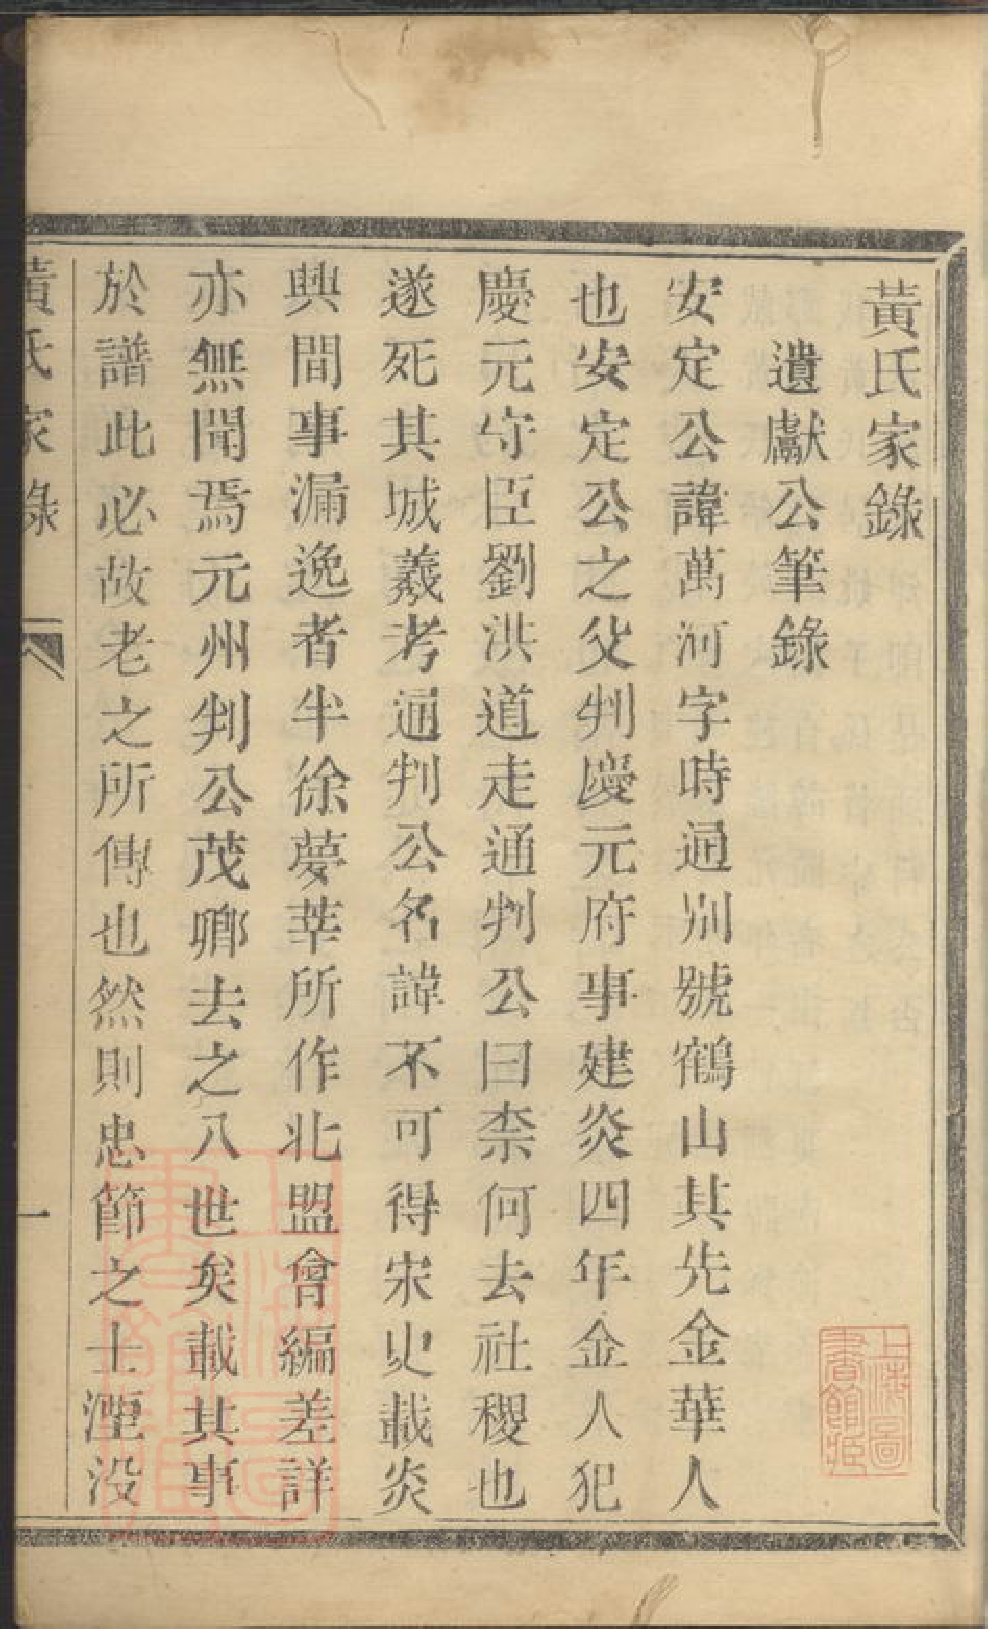 黃氏家錄
遺獻公筆錄
安定公諱萬河字時通別號鶴山其先金華人
也安定公之父判慶元府事建炎四年金人犯
慶元守臣劉洪道走通判公曰柰何去社稷也
遂死其城羲考通判公名諱不可得宋史載炎
興間事漏逸者半徐夢莘所作北盟會編差詳
亦無聞焉元州判公茂卿去之八世矣載其事
於譜此必故老之所傳也然則忠節之士湮没
黃氏家錄
一
上海圖書館藏